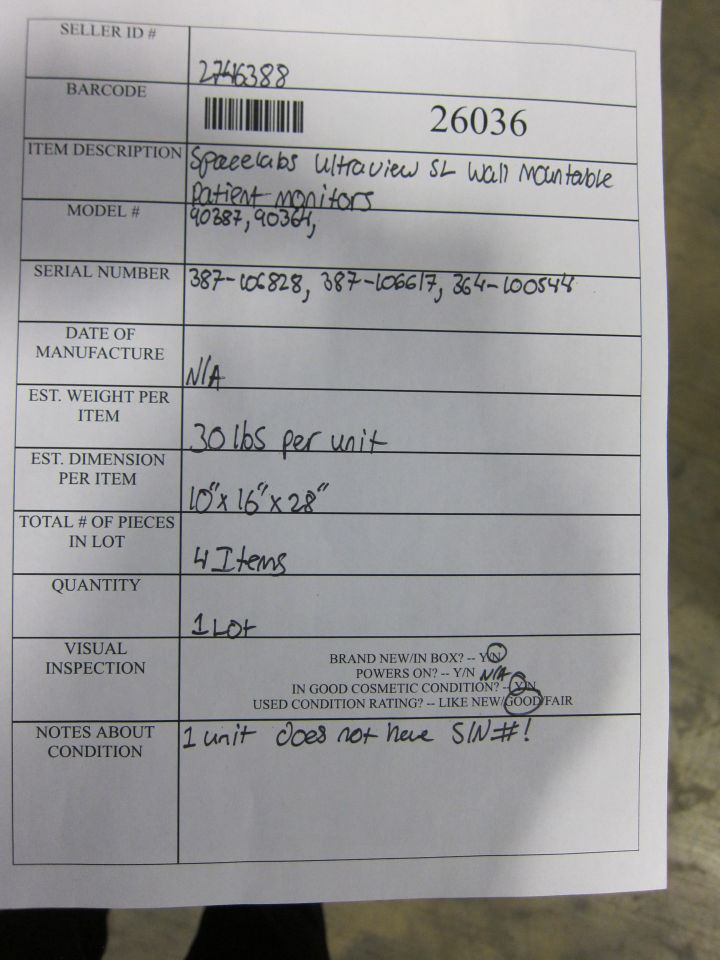 SELLER ID #
2746388
BARCODE
26036
ITEM DESCRIPTION
Spacelabs Ultraview SL Wall Mountable
Patient monitors
MODEL #
90387, 90364,
SERIAL NUMBER
387-106828, 387-106617, 364-100544
DATE OF
MANUFACTURE
N/A
EST. WEIGHT PER
ITEM
30 lbs per unit
EST. DIMENSION
PER ITEM
10" x 16" x 28"
TOTAL # OF PIECES
IN LOT
4 Items
QUANTITY
1 Lot
VISUAL
INSPECTION
BRAND NEW/IN BOX? -- Y/N
POWERS ON? -- Y/N N/A
IN GOOD COSMETIC CONDITION? -- Y/N
USED CONDITION RATING? -- LIKE NEW/GOOD/FAIR
NOTES ABOUT
CONDITION
1 unit does not have S/N #!